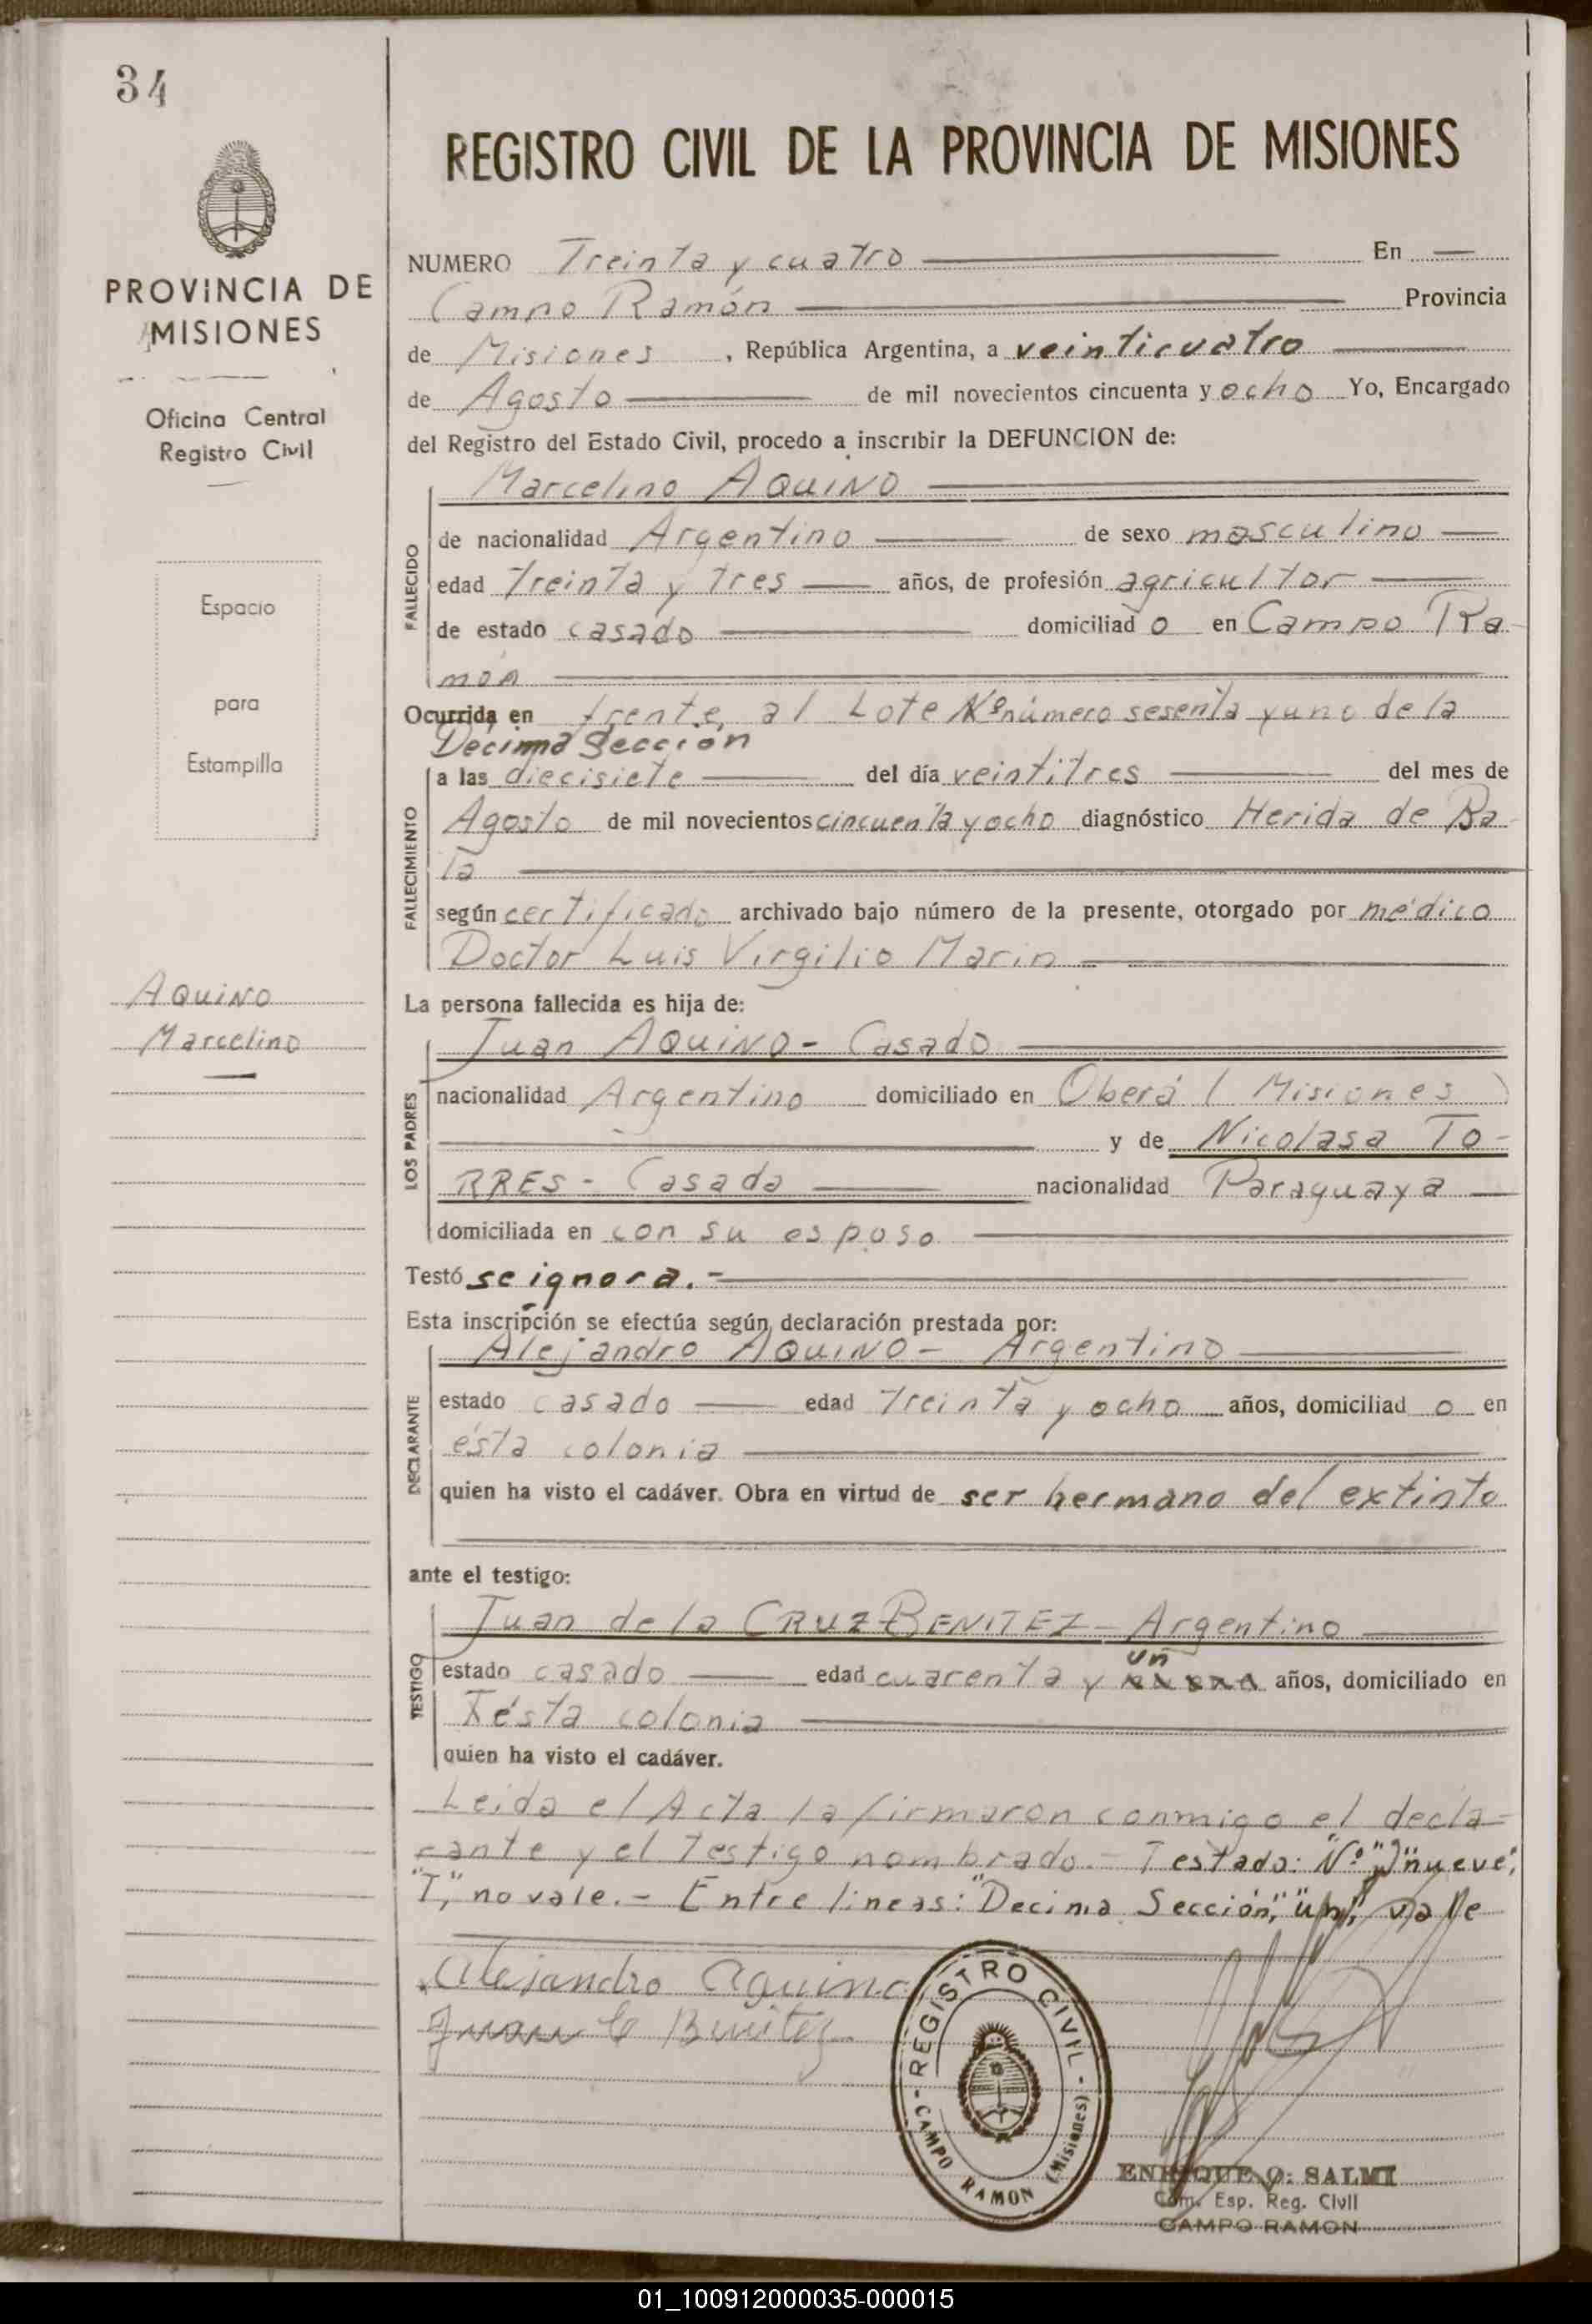 34
PROVINCIA DE
MISIONES
Oficina Central
Registro Civil
Espacio
para
Estampilla
AQUINO
Marcelino
REGISTRO CIVIL DE LA PROVINCIA DE MISIONES
NUMERO Treinta y cuatro En
Campo Ramón Provincia
de Misiones, República Argentina, a veinticuatro
de Agosto de mil novecientos cincuenta y ocho Yo, Encargado
del Registro del Estado Civil, procedo a inscribir la DEFUNCION de:
Marcelino AQUINO
FALLECIDO
de nacionalidad Argentino de sexo masculino
edad treinta y tres años, de profesión agricultor
de estado casado domiciliado en Campo Ra-
món
Ocurrida en frente al Lote Nº número sesenta y uno de la
Decima Sección
FALLECIMIENTO
a las diecisiete del día veintitres del mes de
Agosto de mil novecientos cincuenta y ocho diagnóstico Herida de Ba-
la
según certificado archivado bajo número de la presente, otorgado por médico
Doctor Luis Virgilio Marin
La persona fallecida es hija de:
LOS PADRES
Juan AQUINO - Casado
nacionalidad Argentino domiciliado en Oberá (Misiones)
y de Nicolasa TO-
RRES - Casada nacionalidad Paraguaya
domiciliada en con su esposo
Testó se ignora.-
Esta inscripción se efectúa según declaración prestada por:
DECLARANTE
Alejandro AQUINO - Argentino
estado casado edad treinta y ocho años, domiciliado en
ésta colonia
quien ha visto el cadáver. Obra en virtud de ser hermano del extinto
ante el testigo:
TESTIGO
Juan de la CRUZ BENITEZ - Argentino
un
estado casado edad cuarenta y años, domiciliado en
ésta colonia
quien ha visto el cadáver.
Leida el Acta la firmaron conmigo el decla-
rante y el testigo nombrado.- Testado: "Nº" "nueve",
"T", no vale.- Entre lineas: "Decima Sección", "un", vale
Alejandro Aquino
Juan C Benitez
REGISTRO CIVIL
CAMPO RAMON (Misiones)
ENRIQUE O. SALMI
Com. Esp. Reg. Civil
CAMPO RAMON
01_100912000035-000015